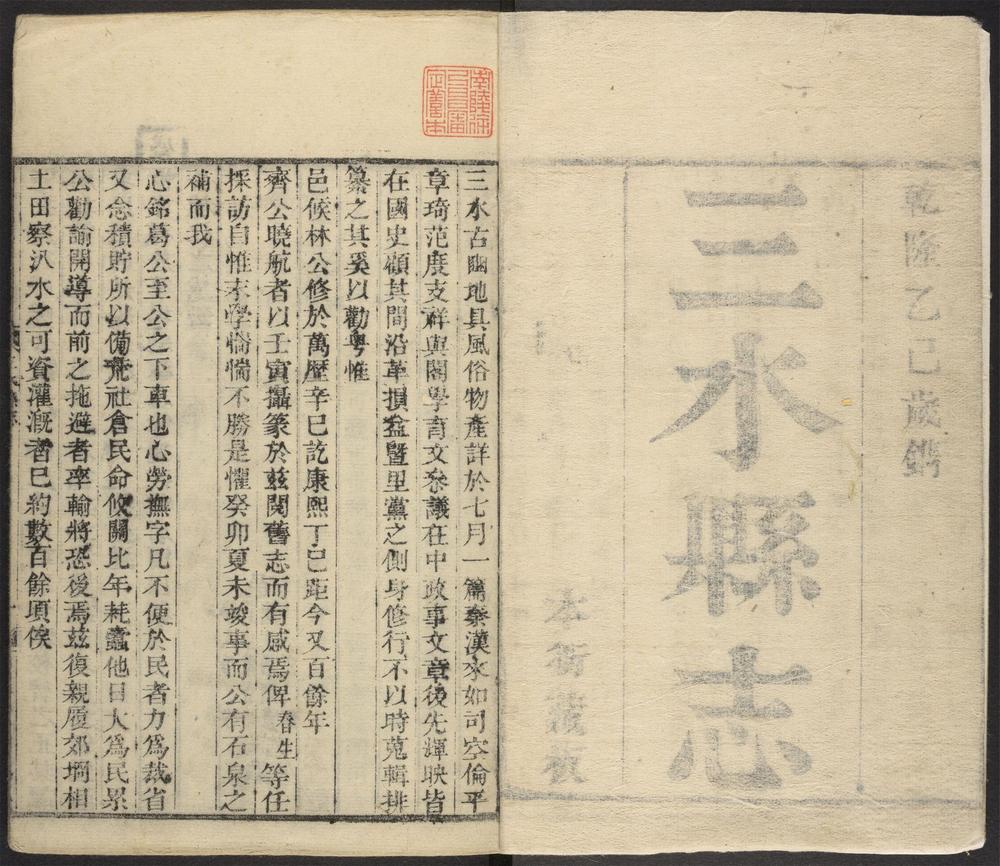 乾隆乙巳歲鐫
三水縣志
本衙藏板
三水古豳地其風俗物產詳於七月一篇秦漢來如司空倫平
章琦范度支祥與閣學育文叅議在中政事文章後先輝映皆
在國史顧其間沿革損益暨里黨之側身修行不以時蒐輯排
纂之其奚以勸粤惟
邑候林公修於萬歷辛巳訖康熙丁巳距今又百餘年
齊公曉航者以壬寅攝篆於兹閱舊志而有感焉俾春生等任
採訪自惟末學惴惴不勝是懼癸卯夏未竣事而公有石泉之
補而我
心銘葛公至公之下車也心勞撫字凡不便於民者力為裁省
又念積貯所以備荒社倉民命攸關比年耗蠹他日大為民累
公勸諭開導而前之拖避者率輸將恐後焉兹復親履郊坰相
土田察汃水之可資灌溉者巳約數百餘項俟
南陵徐
乃昌審
定善本